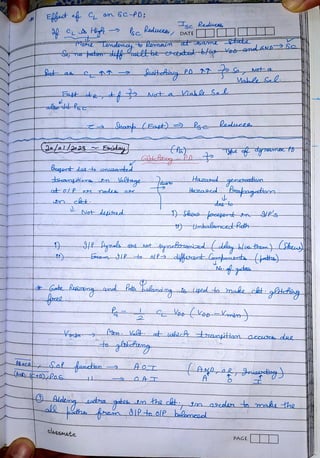 * Effect of CL on SC-PD:
Isc Reduces
If CL ↑ High → Isc Reduces, DATE
More tendency to Remain at same state
So, no poten diff will be created b/w VDD and GND → SC
But as CL ↑↑ → Switching PD ↑↑ } So, not a Viable Sol.
Fast tr, tf } Not a Viable Sol
also ↓ PSC
τ → Sharp (Fast) ⇒ PSC Reduces
20/01/2023 ~ Friday
(PG)
Glitching - PD } Type of dynamic PD
Present due to unwanted
transitions in Voltage
at O/P or nodes
in ckt.
↳ Not desired
Hazard generation
Hazard Propagation
due to
i) Skew present in I/P's
ii) Unbalanced Path
i) I/P Signals are not synchronized (delay b/w them) (Skew)
ii) From I/P to O/P → different Components (paths)
No. of gates
* Gate Resizing and Path balancing is used to make ckt glitching
free
PG = 1/2 CL VDD (VDD - Vmin)
Vmin → Min. Volt at which transition occurs due
to glitching
SOP function → AOI (AND, OR, Inverting)
A O I
POS " → OAI
① Adding extra gates in the ckt, in order to make the
all paths from I/P to O/P balanced
classmate
PAGE